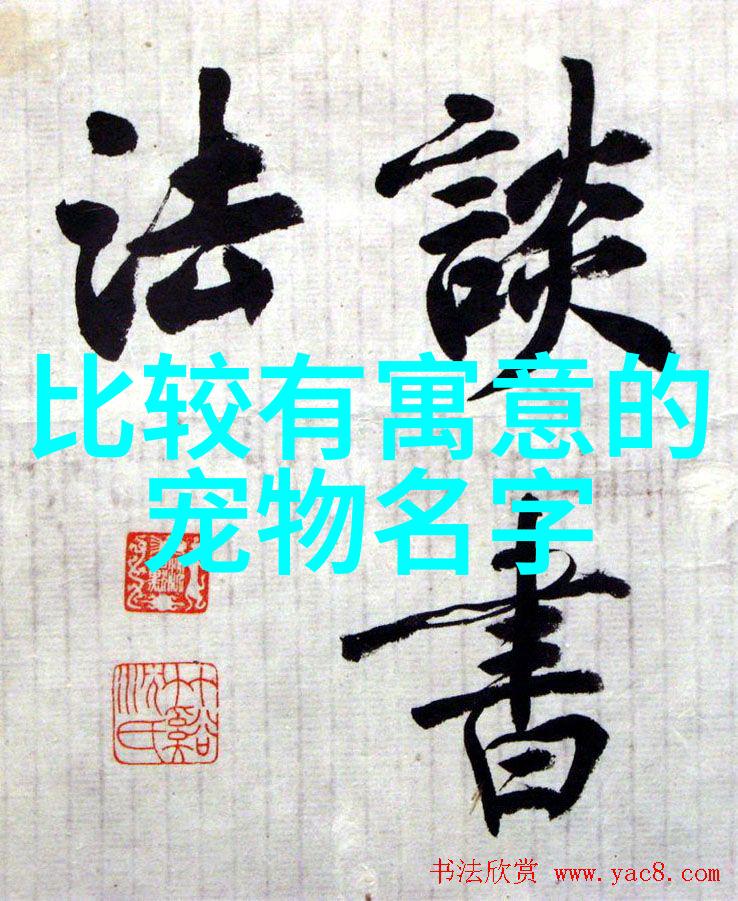 談書
法
比较有寓意的
宠物名字
书法欣赏 www.yac8.com